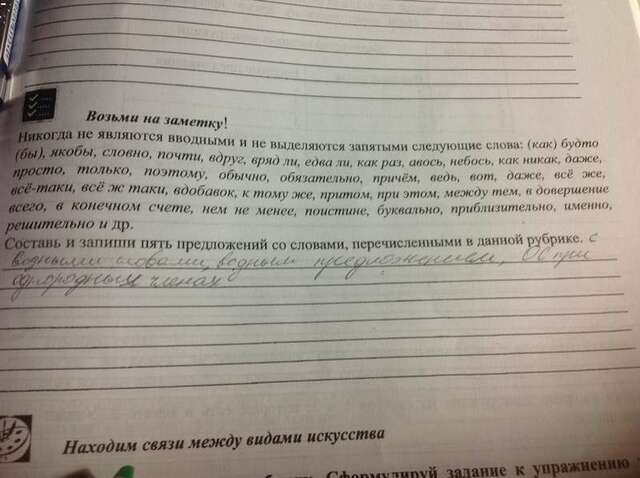 Возьми на заметку!
Никогда не являются вводными и не выделяются запятыми следующие слова: (как) будто
(бы), якобы, словно, почти, вдруг, вряд ли, едва ли, как раз, авось, небось, как никак, даже,
просто, только, поэтому, обычно, обязательно, причём, ведь, вот, даже, всё же,
всё-таки, всё ж таки, вдобавок, к тому же, притом, при этом, между тем, в довершение
всего, в конечном счете, нем не менее, поистине, буквально, приблизительно, именно,
решительно и др.
Составь и запиши пять предложений со словами, перечисленными в данной рубрике. с
водными словами, водным предложением, ОС при
однородных членах
Находим связи между видами искусства
Сформулируй задание к упражнению